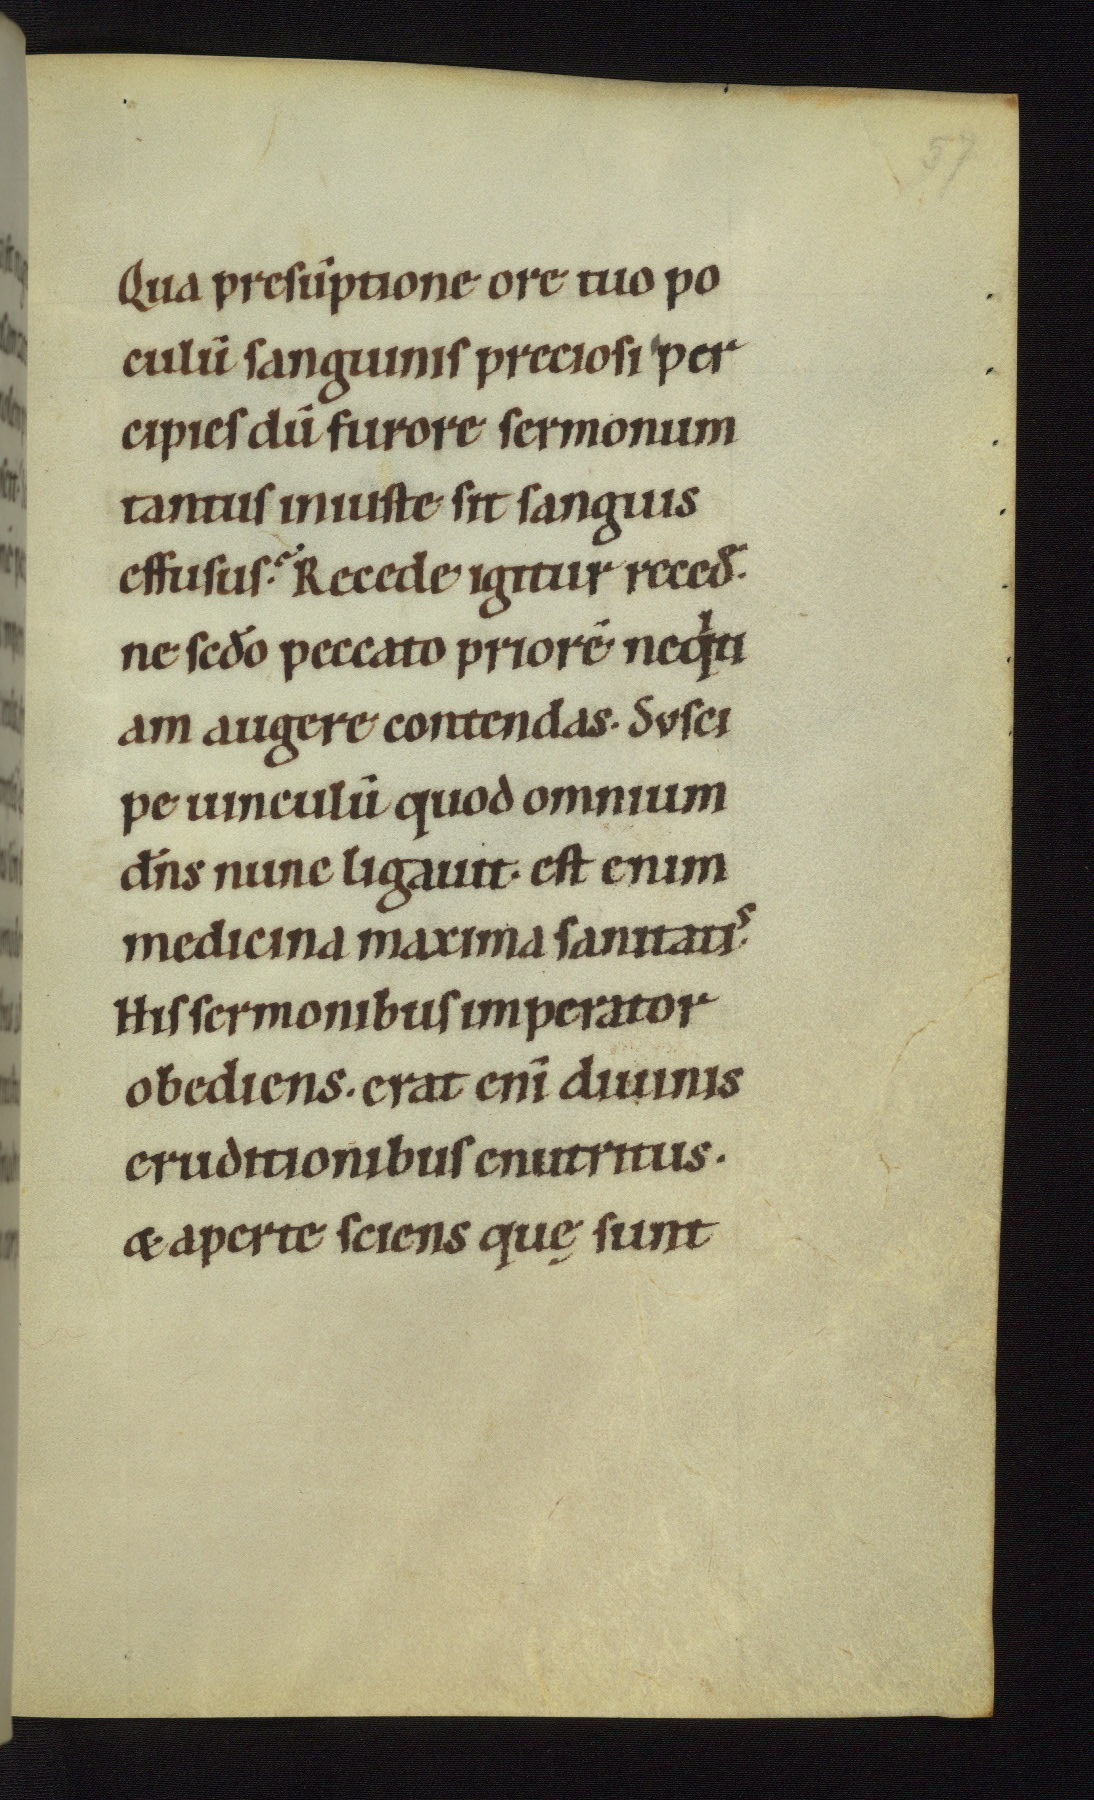 57
Qua presūptione ore tuo po
culū sanguinis preciosi per
cipies dū furore sermonum
tantus iniuste sit sanguis
effusus? Recede igitur reced̄.
ne scd̄o peccato priorē neqⁱti
am augere contendas. Susci
pe uinculū quod omnium
dn̄s nunc ligauit. est enim
medicina maxima sanitatis.
His sermonibus imperator
obediens. erat enī diuinis
eruditionibus enutritus.
& aperte sciens quę sunt